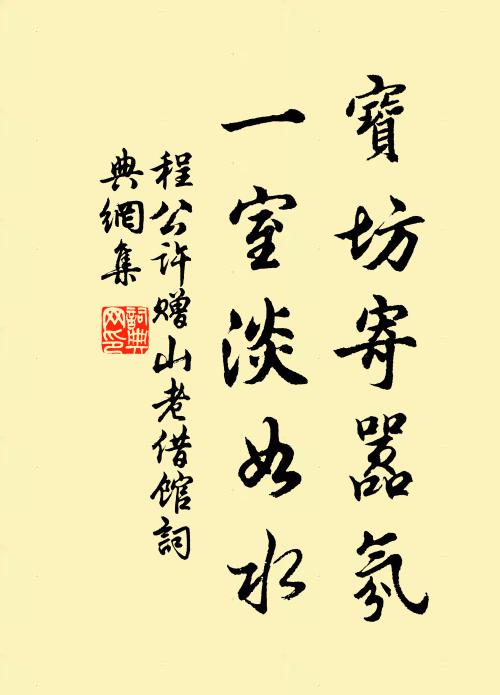 寶坊寄囂氛
一室淡如水
程公許贈山老借館詞
典網集
詞典
网印